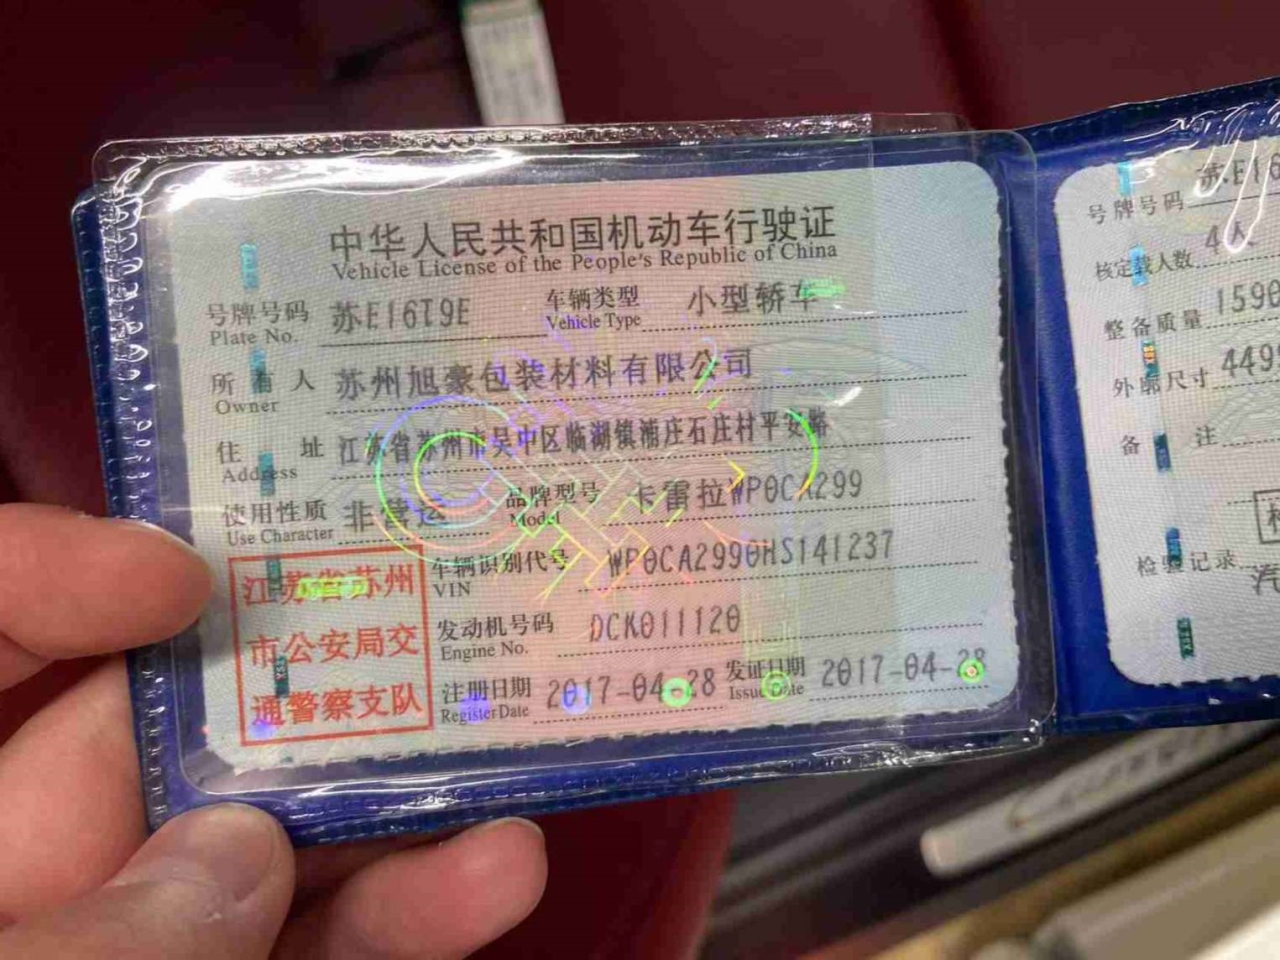 中华人民共和国机动车行驶证
Vehicle License of the People's Republic of China
号牌号码 苏E16T9E 车辆类型 小型轿车
Plate No. Vehicle Type
所有人 苏州旭豪包装材料有限公司
Owner
住址 江苏省苏州市吴中区临湖镇浦庄石庄村平安路
Address
使用性质 非营运 品牌型号 卡雷拉WP0CA299
Use Character Model
车辆识别代号 WP0CA2990HS141237
VIN
发动机号码 DCK011120
Engine No.
注册日期 2017-04-28 发证日期 2017-04-28
Register Date Issue Date
江苏省苏州
市公安局交
通警察支队
号牌号码 苏E16
核定载人数 4人
整备质量 1590
外廓尺寸 449
备注
检验记录